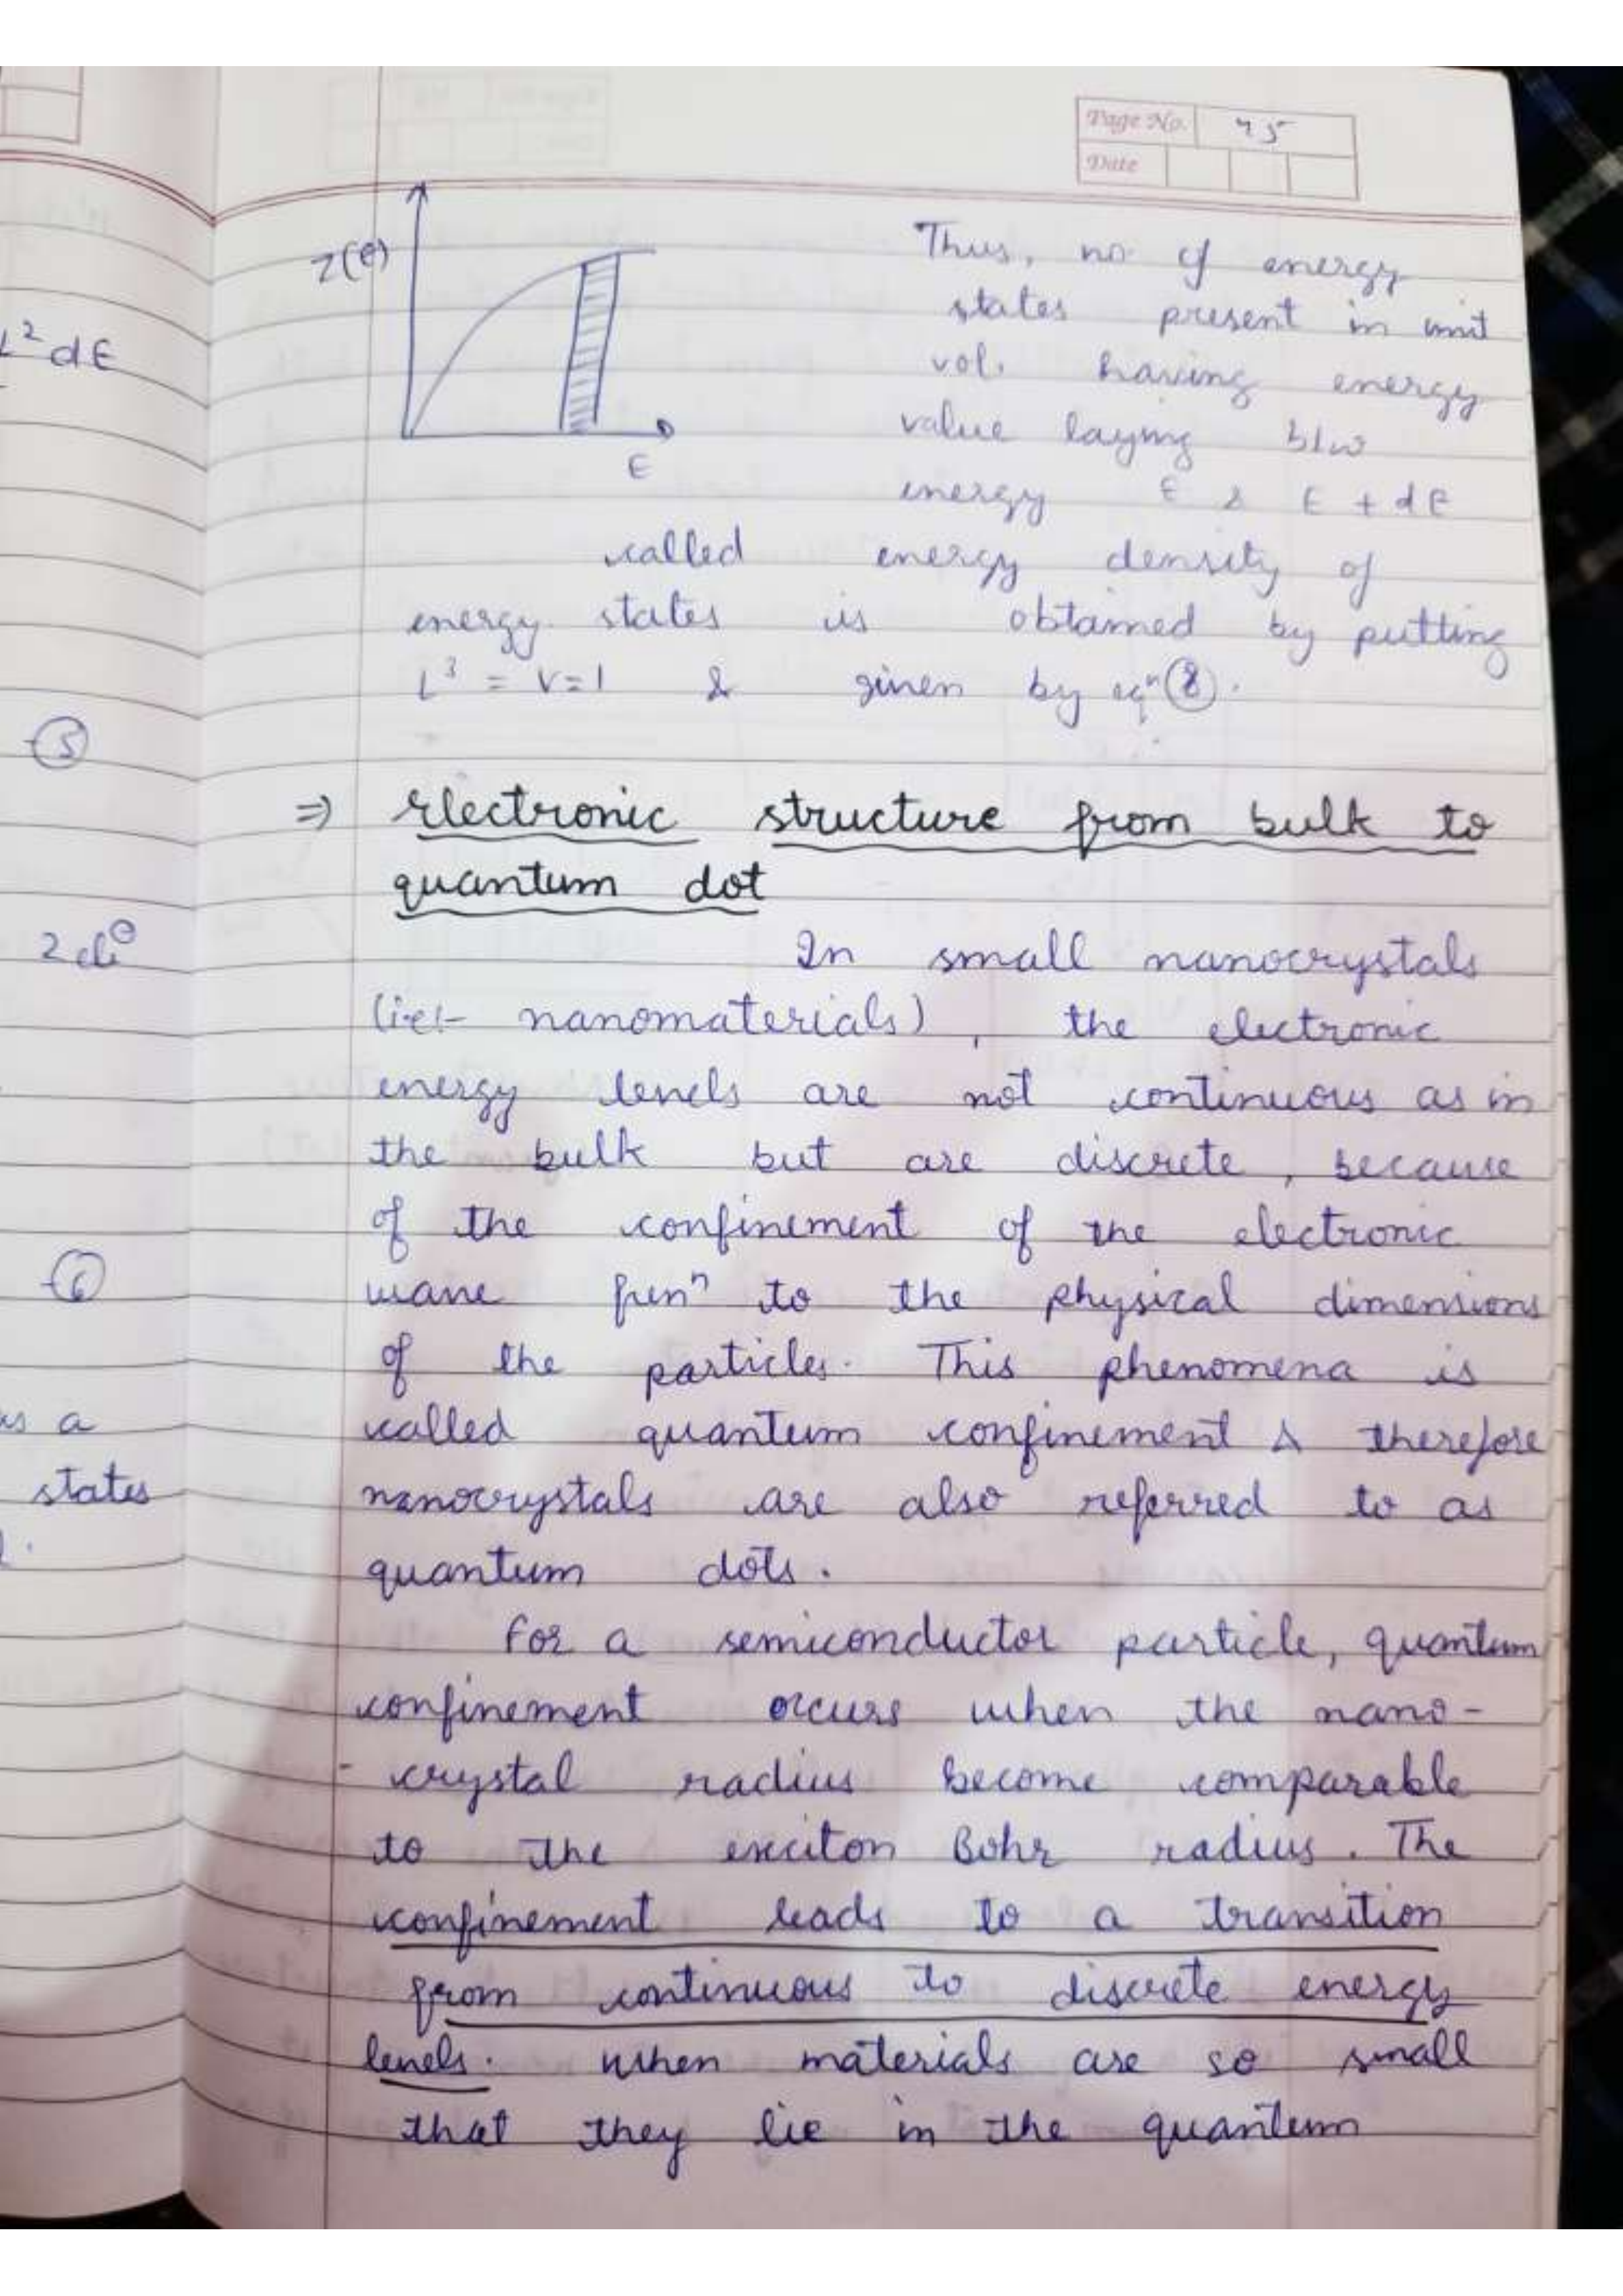 Page No. 45
Date
Z(E)
E
Thus, no of energy
states present in unit
vol. having energy
value laying b/w
energy E & E + dE
called energy density of
energy states is obtained by putting
L³ = V=1 & given by eqⁿ (8).
L² dE
(5)
⇒ Electronic structure from bulk to
quantum dot
In small nanocrystals
(i.e:- nanomaterials), the electronic
energy levels are not continuous as in
the bulk but are discrete, because
of the confinement of the electronic
wave funⁿ to the physical dimensions
of the particles. This phenomena is
called quantum confinement & therefore
nanocrystals are also referred to as
quantum dots.
(6)
as a
states
For a semiconductor particle, quantum
confinement occurs when the nano-
- crystal radius become comparable
to the exciton Bohr radius. The
confinement leads to a transition
from continuous to discrete energy
levels. When materials are so small
that they lie in the quantum